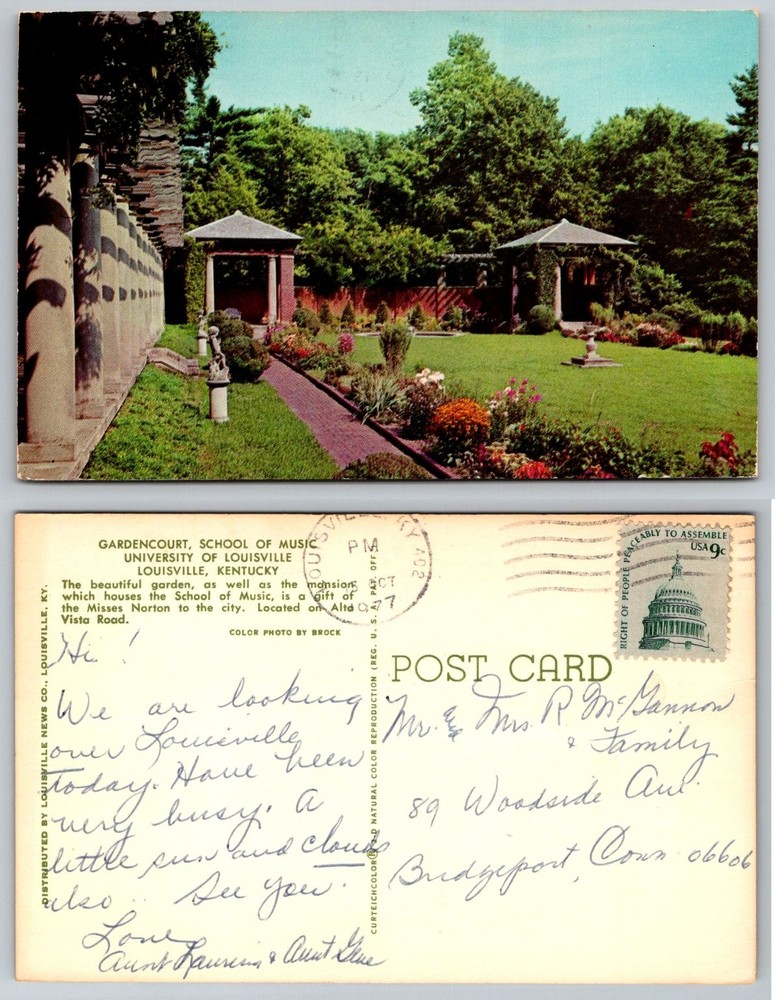 GARDENCOURT, SCHOOL OF MUSIC
UNIVERSITY OF LOUISVILLE
LOUISVILLE, KENTUCKY
The beautiful garden, as well as the mansion
which houses the School of Music, is a gift of
the Misses Norton to the city. Located on Alta
Vista Road.
COLOR PHOTO BY BROCK
DISTRIBUTED BY LOUISVILLE NEWS CO., LOUISVILLE, KY.
Hi!
We are looking
over Louisville
today. Have been
very busy. A
little sun and clouds
also.. See you.
Love
Aunt & Aunt
CURTEICHCOLOR® 3-D NATURAL COLOR REPRODUCTION (REG. U. S. A. PAT. OFF.)
LOUISVILLE, KY 402
PM
5 OCT
1977
RIGHT OF PEOPLE PEACEABLY TO ASSEMBLE
USA 9c
POST CARD
Mr. & Mrs. R McGannon
& Family
89 Woodside Ave.
Bridgeport, Conn 06606